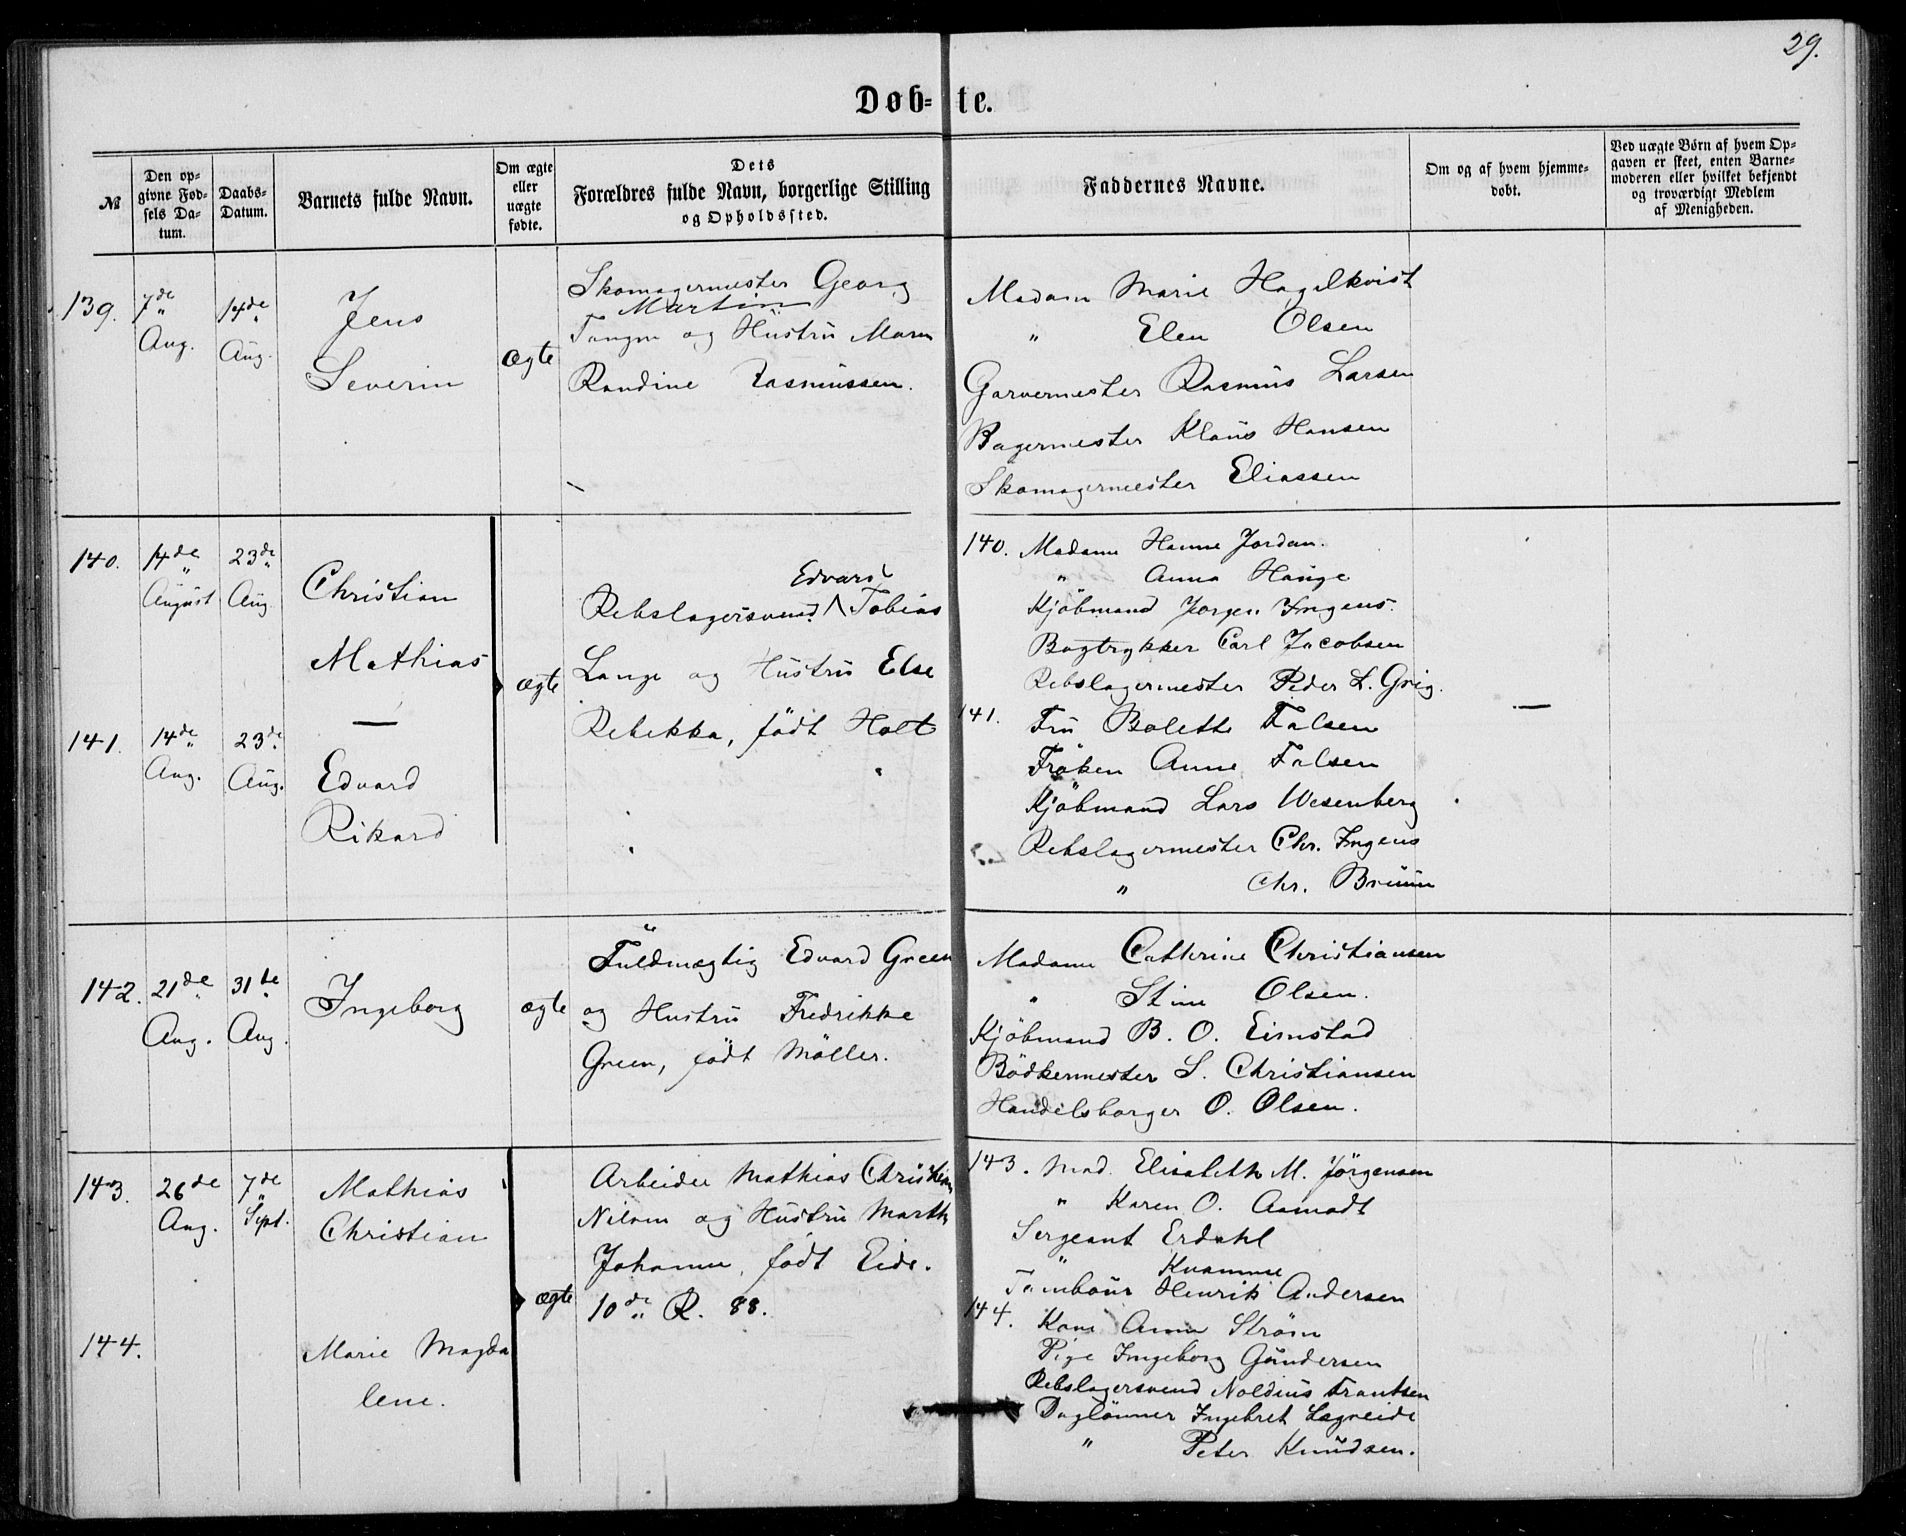 29.
Døb- te.
№
Den op-
givne Fød-
sels Da-
tum.
Daabs-
Datum.
Barnets fulde Navn.
Om ægte
eller
uægte
fødte.
Dets
Forældres fulde Navn, borgerlige Stilling
og Opholdssted.
Faddernes Navne.
Om og af hvem hjemme-
døbt.
Ved uægte Børn af hvem Op-
gaven er skeet, enten Barne-
moderen eller hvilket bekjendt
og troværdigt Medlem
af Menigheden.
139.
7de
Aug.
14de
Aug.
Jens
Severin
Ægte
Skomagermester Georg
Martin
og Hustru Maren
Randine Rasmussen.
Madam Marie Hagelkvist
" Elen Olsen
Garvermester Rasmus Larsen
Bagermester Klaus Hansen
Skomagermester Eliassen
140.
14de
August
23de
Aug
Christian
Mathias
—
141.
14de
Aug.
23de
Aug.
Edvard
Rikard
ægte
Edvard
Rebslagersvend Tobias
Lange og Hustru Else
Rebekka, født Holt
140. Madame Hanne Jordan.
" Anna Hauge
Kjöbmand Jørgen Irgens.
Bogtrykker Carl Jacobsen
Rebslagermester Peder L. Grig.
141. Fru Bolette Falsen
Fröken Anne Falsen
Kjöbmand Lars Wesenberg
Rebslagermester Chr. Irgens
" Chr. Bruun
—
142.
21de
Aug.
31te
Aug.
Ingeborg
ægte
Fuldmægtig Edvard Green
og Hustru Fredrikke
Green, født Möller.
Madame Cathrine Christiansen
" Stine Olsen.
Kjöbmand B. O. Eimstad
Bödkermester S. Christiansen
Handelsborger O. Olsen.
143.
26de
Aug.
7de
Sept.
Mathias
Christian
144.
Marie Magda
lene.
ægte
Arbeider Mathias Christian
Nilsen og Hustru Marthe
Johanne, født Eide.
10de R. 88.
143. Mad. Elisabeth M. Jörgensen
" Karen O. Aamodt
Sergeant Erdahl
" Kvamme
Tambour Henrik Andersen
144. Kone Anna Ström
Pige Ingeborg Gundersen
Rebslagersvend Noldius Frantsen
Daglönner Ingebret Lagreide
" Peter Knudsen.